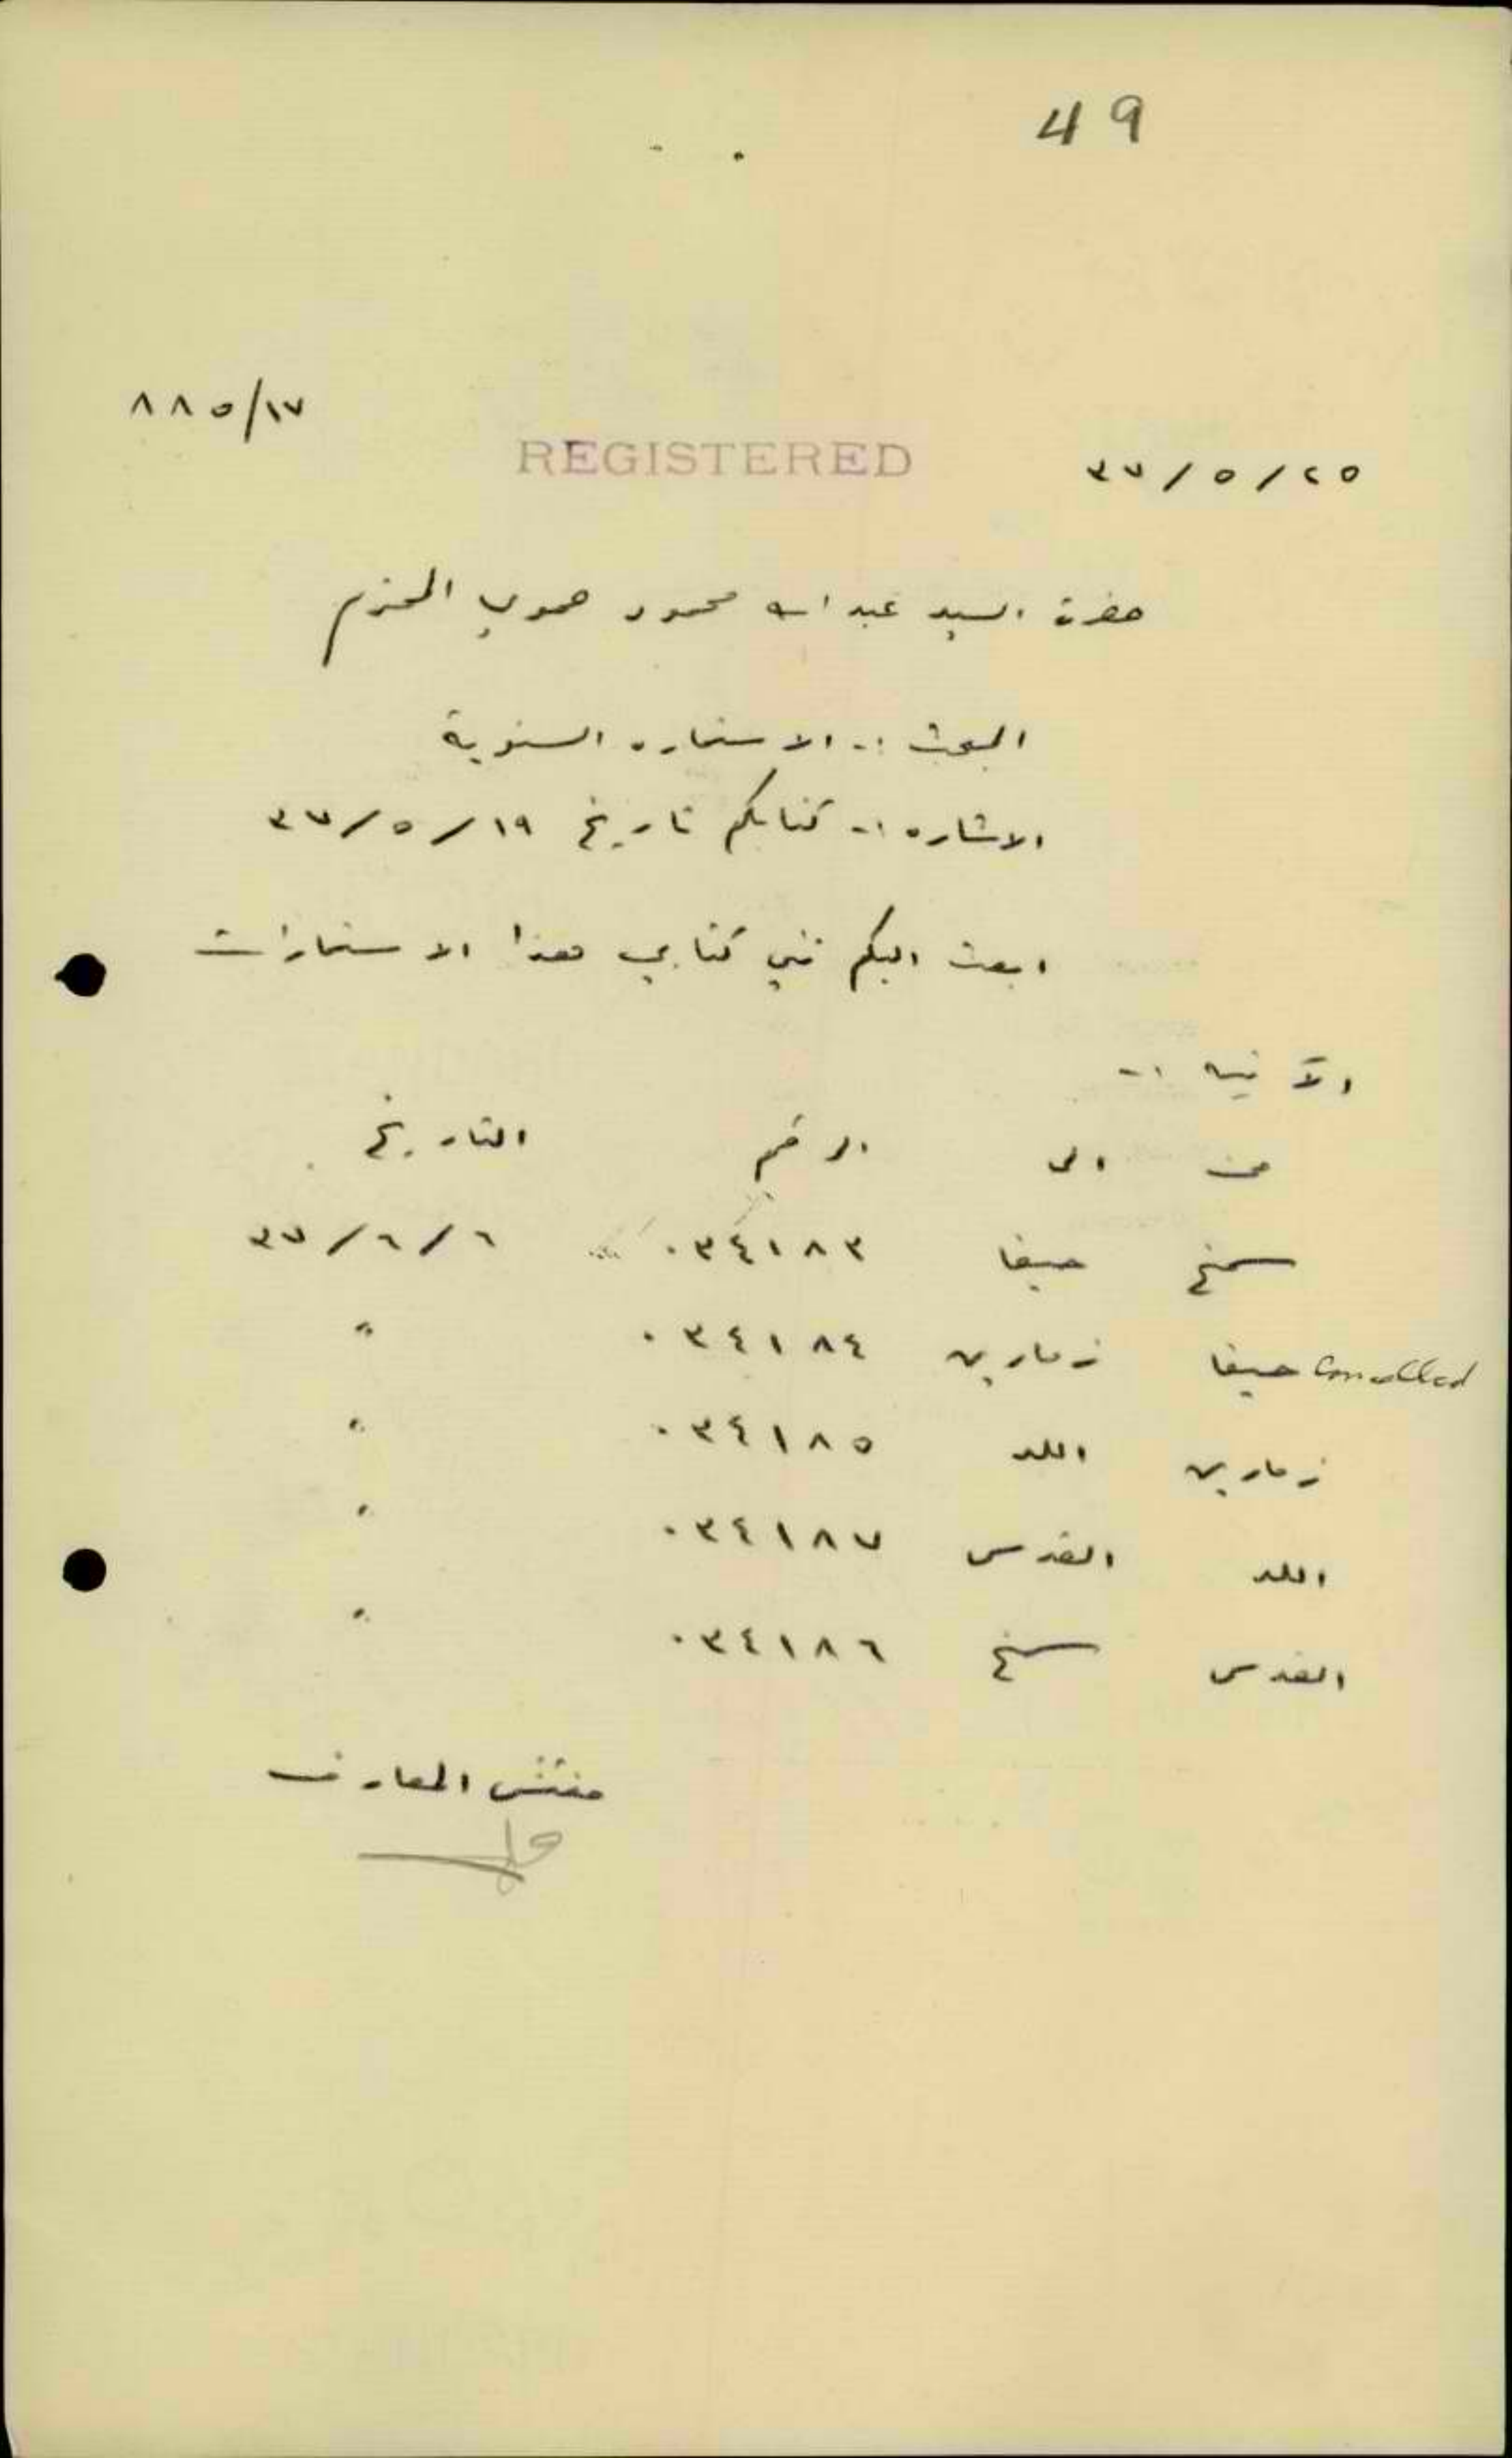 49
٨٨٥/١٧
REGISTERED
٢٥/٥/٣٧
حضرة السيد عبد الله محمود حموي المحترم
المبحث :- الاستماره السنوية
الاشاره :- كتابكم تاريخ ١٩/٥/٣٧
ابعث اليكم في كتابي هذا الاستمارات
الآتيه :-
من الى الرقم التاريخ
سمخ حيفا ٠٣٤١٨٣ ٦/٦/٣٧
Cancelled حيفا زمارين ٠٣٤١٨٤ "
زمارين اللد ٠٣٤١٨٥ "
اللد القدس ٠٣٤١٨٧ "
القدس سمخ ٠٣٤١٨٦ "
مفتش المعارف